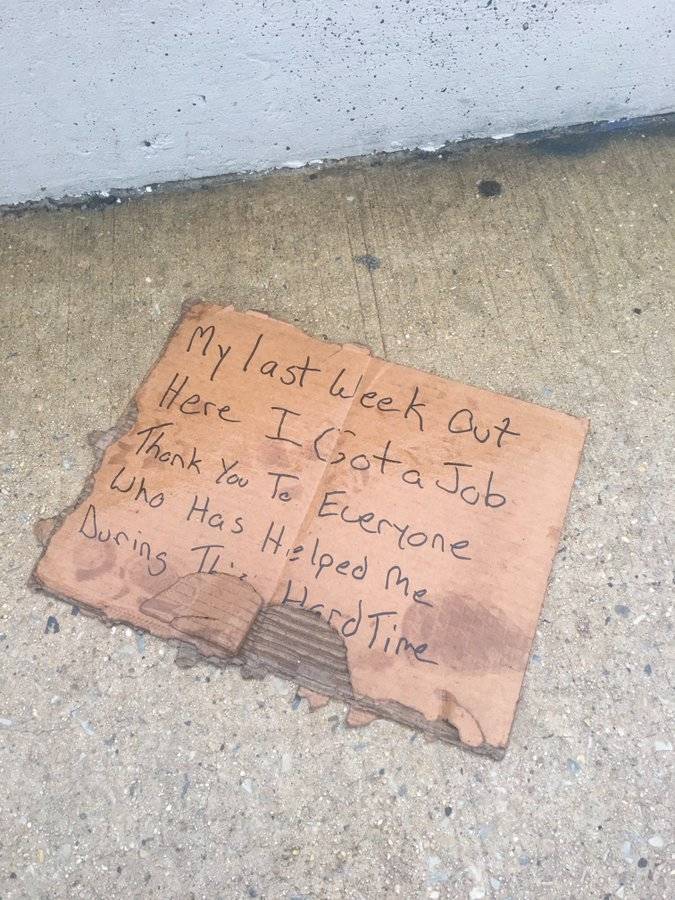 My last Week Out
Here I Got a Job
Thank You To Everyone
Who Has Helped Me
During This Hard Time